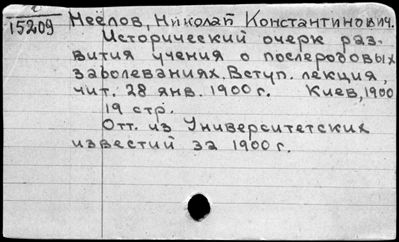 15209
Неёлов, Николай Константинович.
Исторический очерк раз-
вития учения о послеродовых
заболеваниях. Вступ. лекция,
чит. 28 янв. 1900 г. Киев, 1900
19 стр.
Отт. из Университетских
известий за 1900 г.